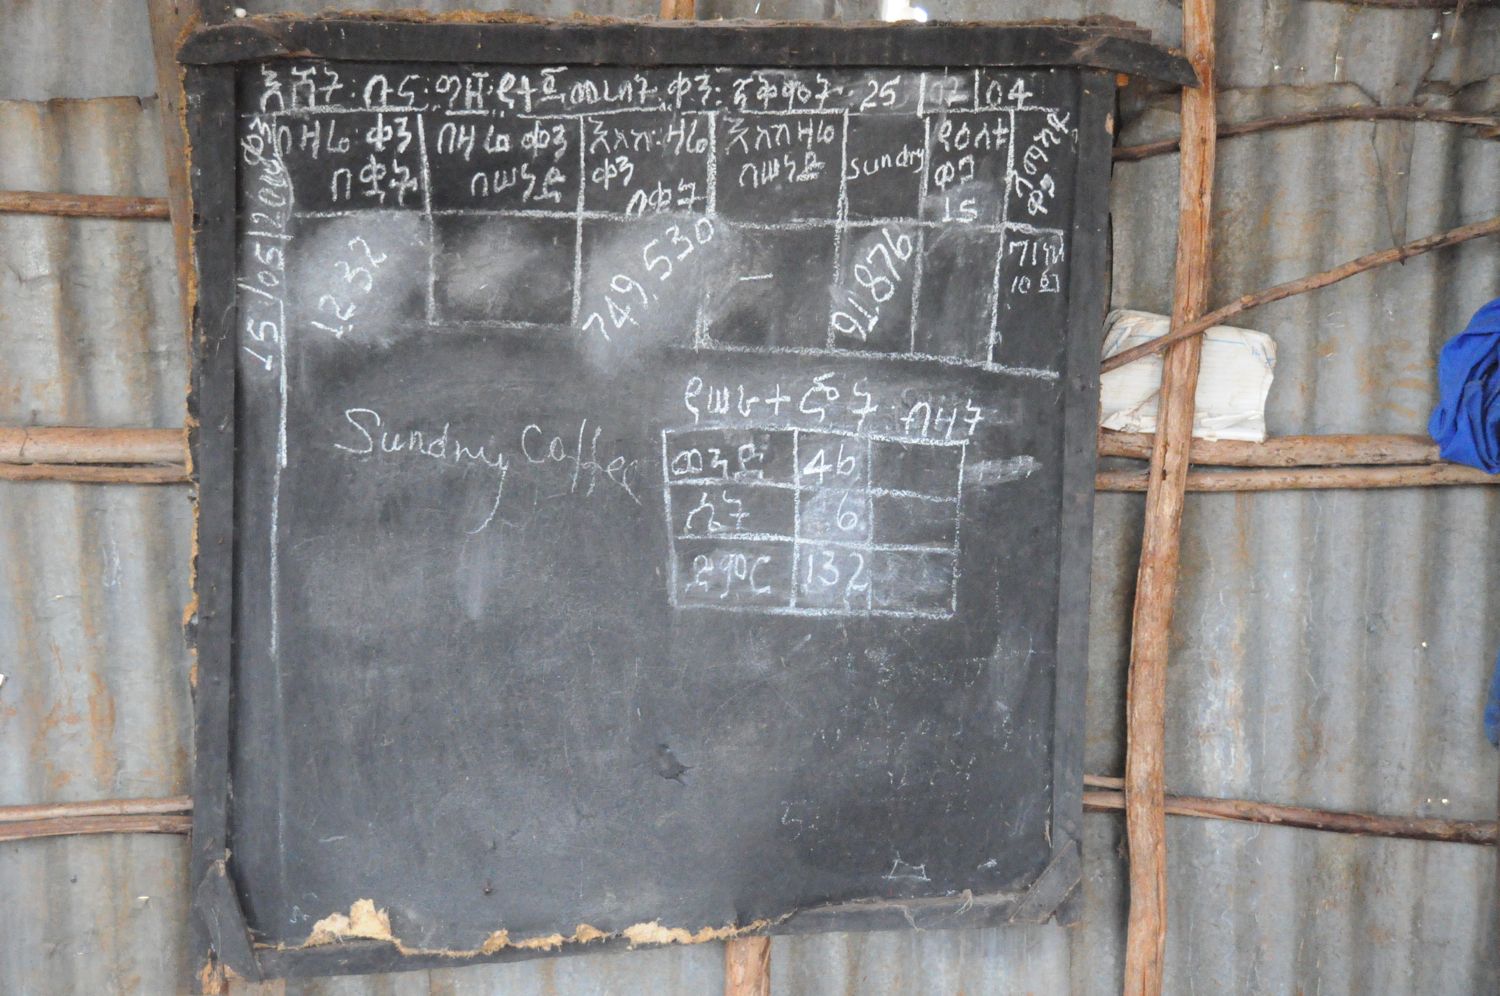 እሸት ቡና ግዢ የተጀመረበት ቀን ጥቅምት 25/02/04
ቀን
በዛሬ ቀን በቁጥር
በዛሬ ቀን በሠነድ
እስከ ዛሬ ቀን በቁጥር
እስከ ዛሬ በሠነድ
sundry
የዕለቱ ዋጋ 15
15/05/2004
1232
749,530
-
91.876
Sundry Coffee
የሠራተኞች ብዛት
ወንድ 46
ሴት 6
ድምር 132